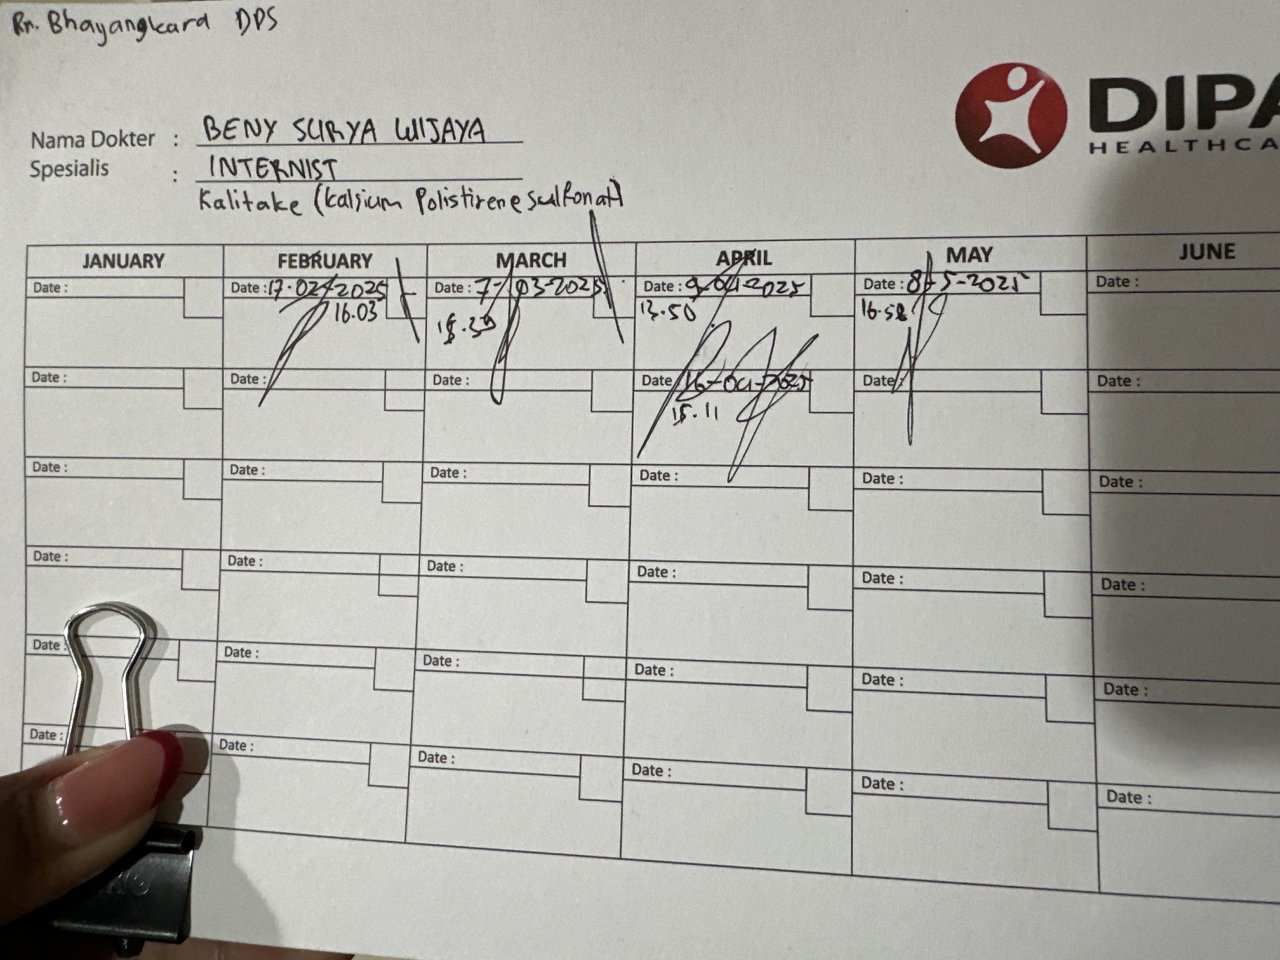 Rn. Bhayangkara DPS
DIPA
HEALTHCA
Nama Dokter : BENY SURYA WIJAYA
Spesialis : INTERNIST
Kalitake (Kalsium Polistirene sulfonat)
JANUARY FEBRUARY MARCH APRIL MAY JUNE
Date : Date : 17-02-2025 Date : 7-03-2025 Date : 9-04-2025 Date : 8-5-2025 Date :
16.03 15.39 13.50 16.58
Date : Date : Date : Date 16-04-2025 Date : Date :
15.11
Date : Date : Date : Date : Date : Date :
Date : Date : Date : Date : Date : Date :
Date : Date : Date : Date : Date : Date :
Date : Date : Date : Date : Date : Date :